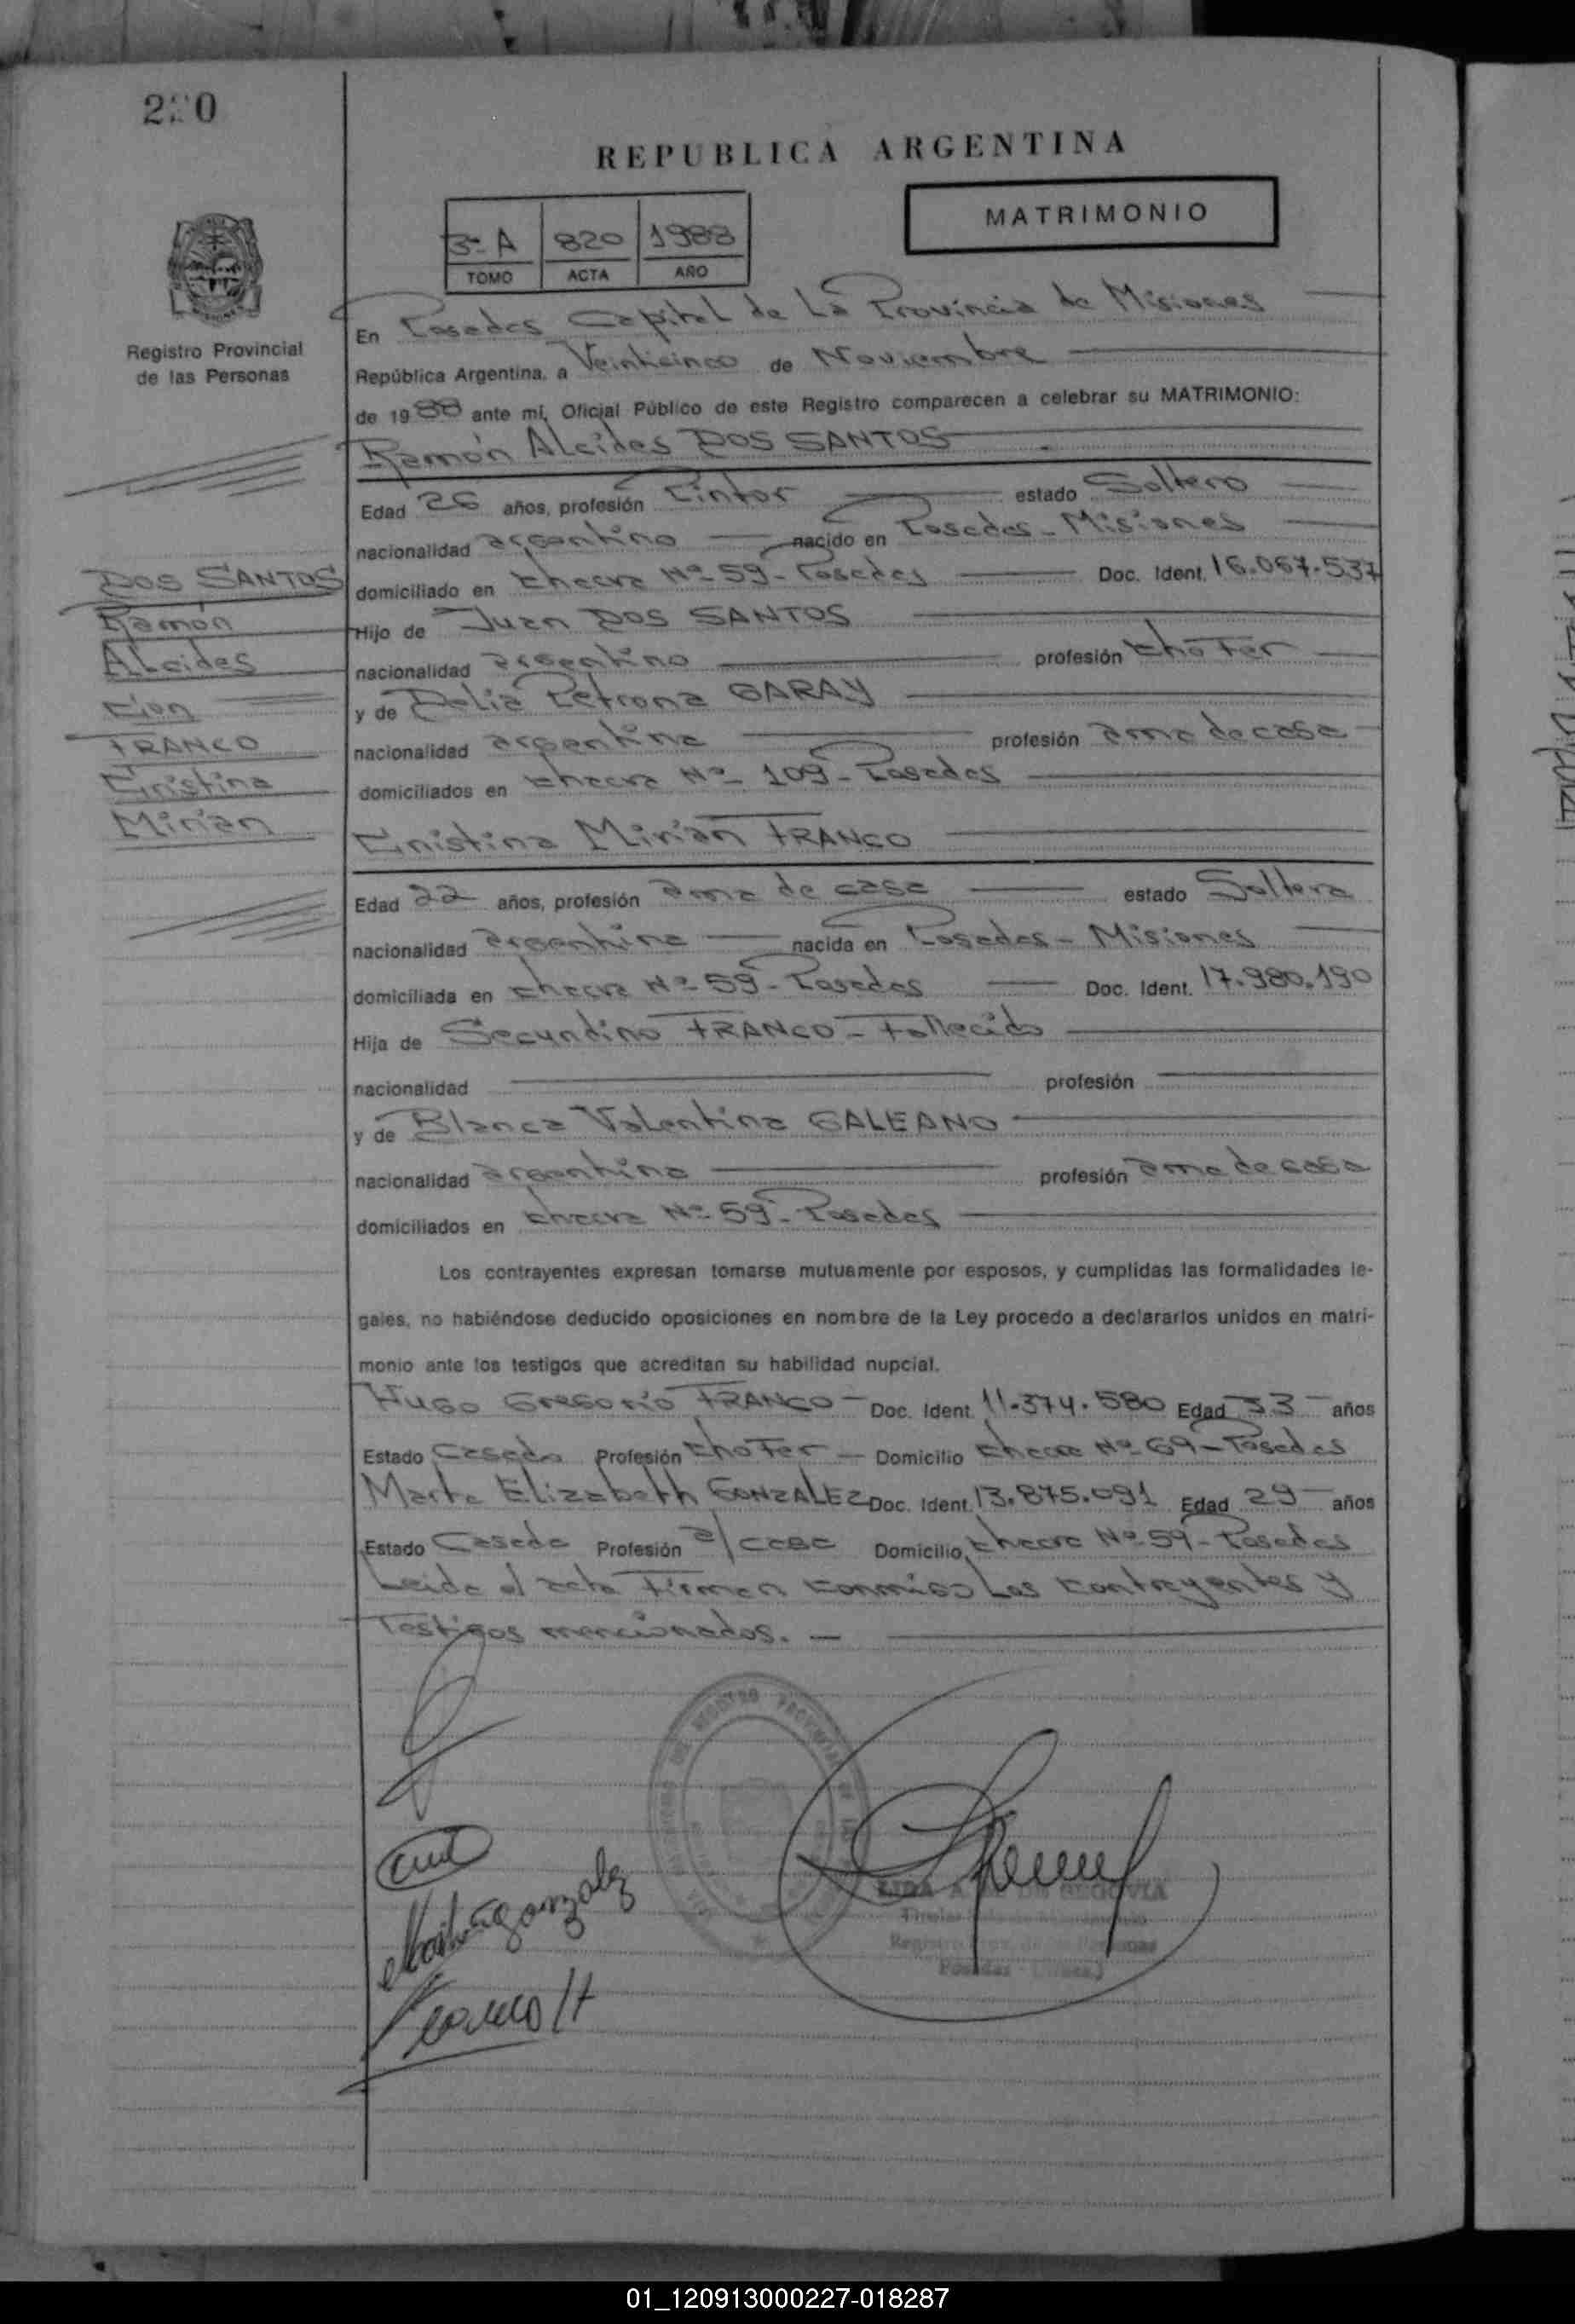 220
REPUBLICA ARGENTINA
MATRIMONIO
3ª A 820 1988
TOMO ACTA AÑO
Registro Provincial
de las Personas
En Posadas Capital de La Provincia de Misiones
República Argentina, a Veinticinco de Noviembre
de 1988 ante mí, Oficial Público de este Registro comparecen a celebrar su MATRIMONIO:
Ramón Alcides DOS SANTOS
Edad 26 años, profesión Pintor estado Soltero
nacionalidad argentino nacido en Posadas - Misiones
domiciliado en Chacra Nº 59 - Posadas Doc. Ident. 16.067.537
Hijo de Juan DOS SANTOS
nacionalidad argentino profesión Chofer
y de Delia Petrona GARAY
nacionalidad argentina profesión ama de casa
domiciliados en Chacra Nº 109 - Posadas
DOS SANTOS
Ramón
Alcides
Con
FRANCO
Cristina
Mirian
Cristina Mirian FRANCO
Edad 22 años, profesión ama de casa estado Soltera
nacionalidad argentina nacida en Posadas - Misiones
domiciliada en Chacra Nº 59 - Posadas Doc. Ident. 17.980.190
Hija de Secundino FRANCO - Fallecido
nacionalidad profesión
y de Blanca Valentina GALEANO
nacionalidad argentina profesión ama de casa
domiciliados en Chacra Nº 59 - Posadas
Los contrayentes expresan tomarse mutuamente por esposos, y cumplidas las formalidades le-
gales, no habiéndose deducido oposiciones en nombre de la Ley procedo a declararlos unidos en matri-
monio ante los testigos que acreditan su habilidad nupcial.
Hugo Gregorio FRANCO - Doc. Ident. 11.374.580 Edad 33 años
Estado Casado Profesión Chofer - Domicilio Chacra Nº 69 - Posadas
Marta Elizabeth GONZALEZ Doc. Ident. 13.875.091 Edad 29 años
Estado Casada Profesión a/casa Domicilio Chacra Nº 59 - Posadas
Leida el acta Firman conmigo Los contrayentes y
Testigos mencionados. -
Franco H
SEGOVIA
Titular
Posadas
01_120913000227-018287